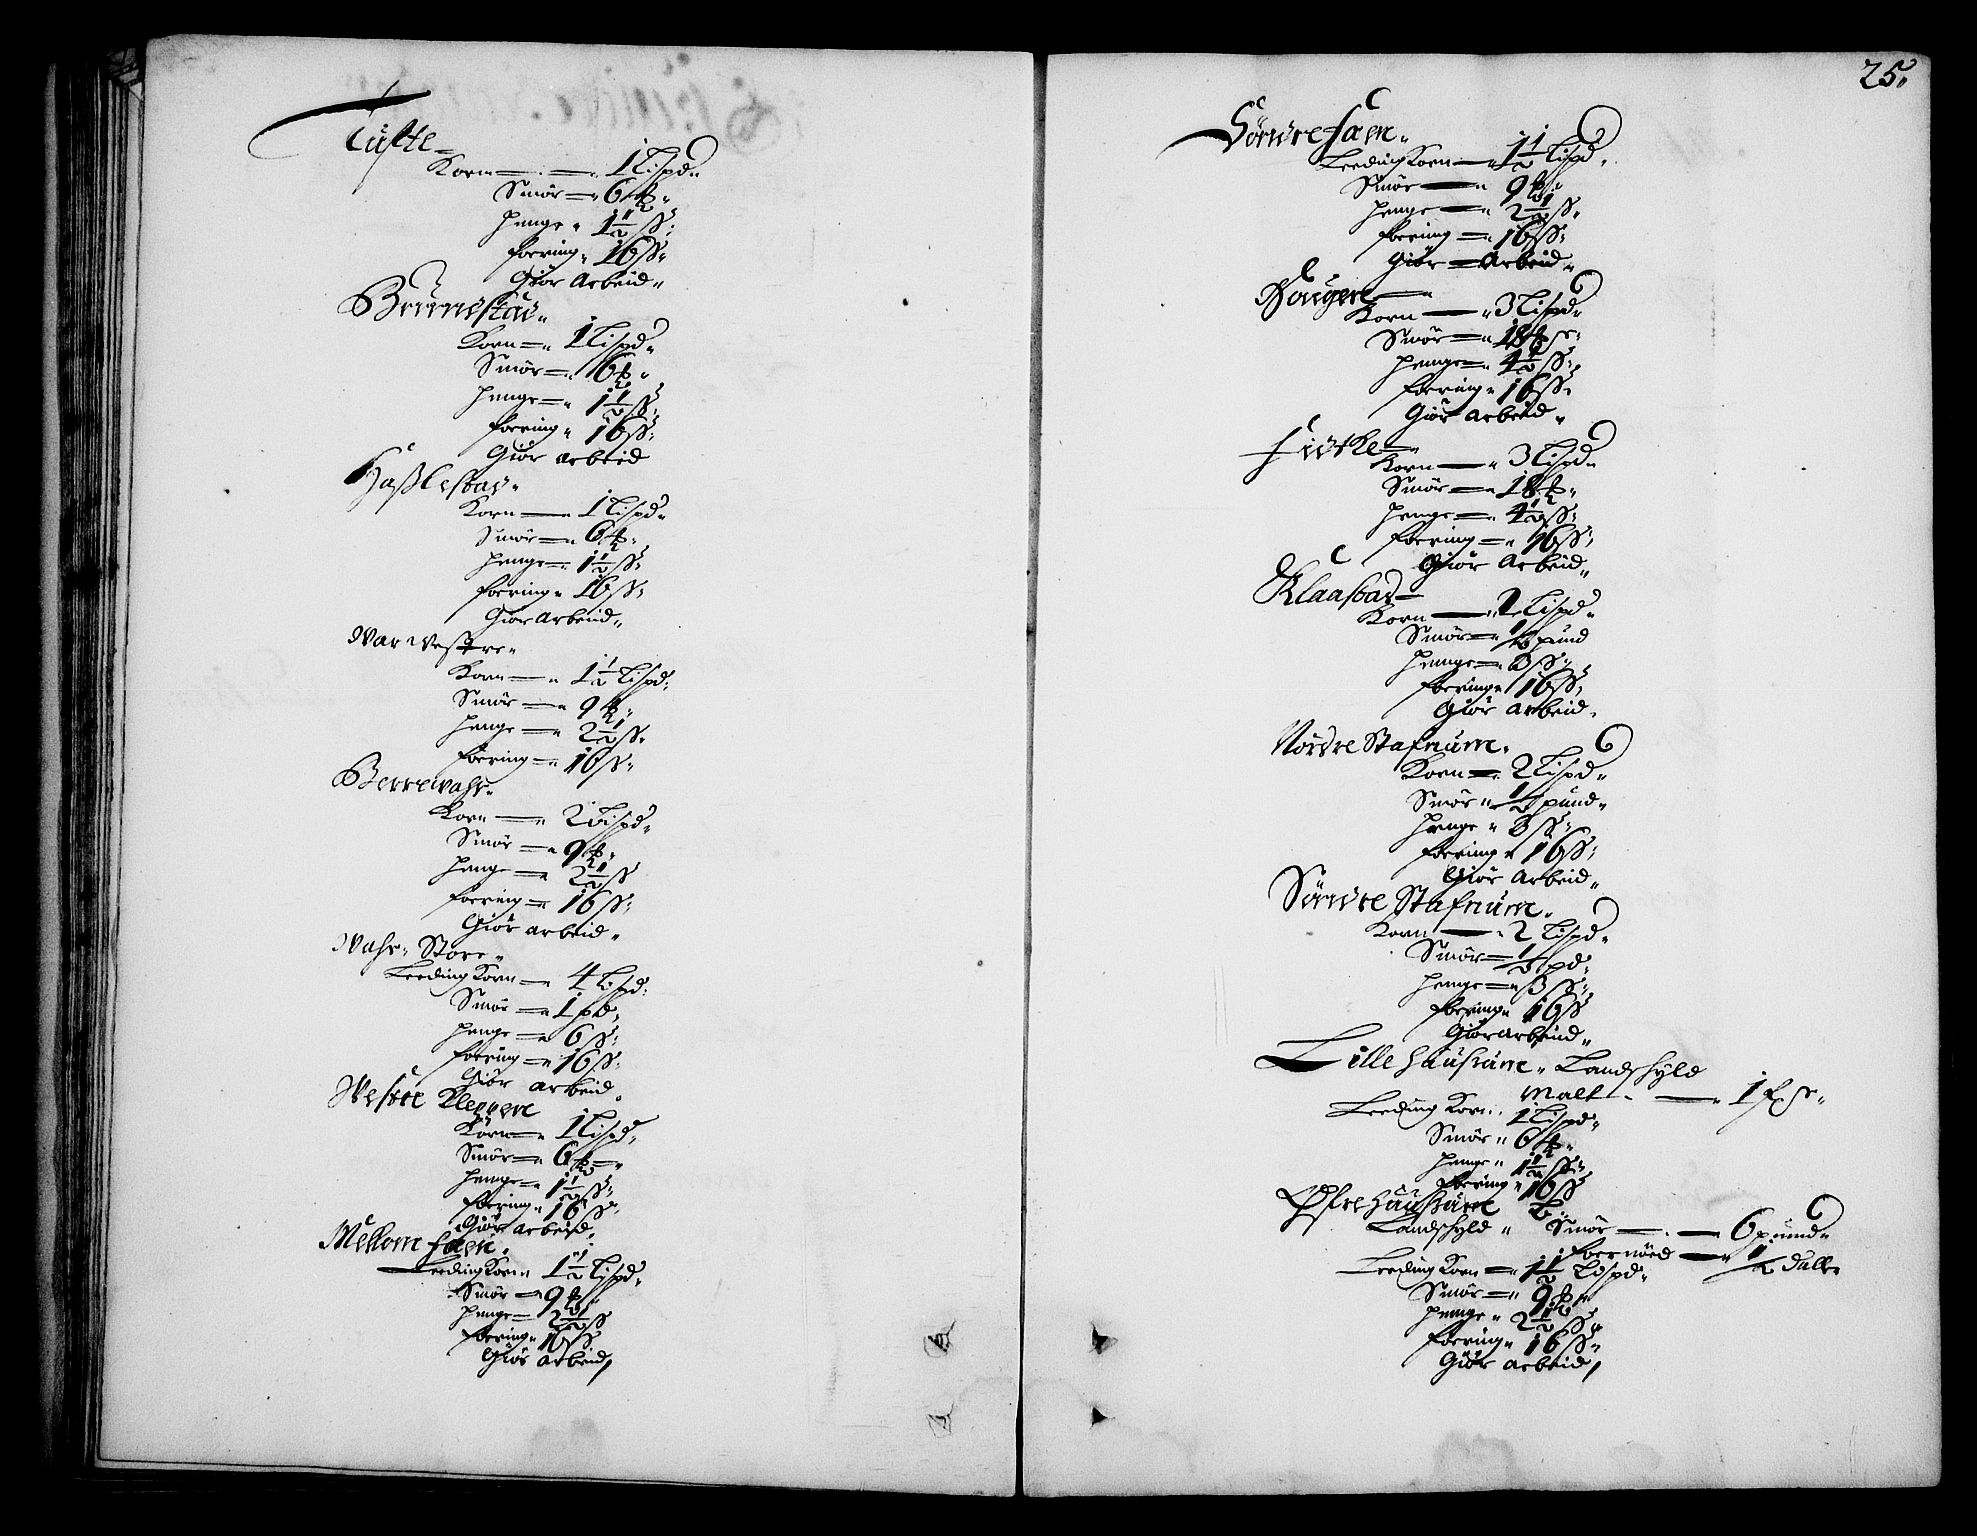 Tufte
Korn — 1 Lispd
Smör — 6 ℔
Penge 1½ ß:
foering 16 ß
Giör Arbeid
Brunnstad
Korn — 1 Lispd
Smör — 6 ℔
Penge — 1½ ß
foering 16 ß:
Giör arbeid
Haßlestad
Korn — 1 Lispd
Smör — 6 ℔
Penge — 1½ ß:
foering 16 ß:
Giör Arbeid
War Westre
Korn — 1½ Lispd:
Smör — 9 ℔
Penge — 2½ ß
foering — 16 ß
Berrewahr
Korn — 2 Lispd
Smör — 9 ℔
Penge — 2½ ß
foering — 16 ß:
Giör arbeid
Wahr Store
Leeding Korn — 4 Lispd:
Smör — 1 pd
Penge — 6 ß:
foering — 16 ß:
Giör arbeid
Westre Kleppene
Korn — 1 Lispd
Smör — 6 ℔
Penge — 1½ ß:
foering 16 ß
Giör arbeid
Mellom faen
Leeding Korn 1½ Lispd
Smör — 9 ℔
Penge — 2½ ß
foering 16 ß
Giör arbeid
25.
Söndre faen
Leeding Korn — 1½ Lispd
Smör — 9 ℔
Penge — 2½ ß
foering — 16 ß:
Giör — Arbeid
Korn — 3 Lispd
Smör — 18 ℔ sr
Penge — 4½ ß:
foering 16 ß
Giör arbeid
Korn — 3 Lispd
Smör — 18 ℔
Penge — 4½ ß:
foering — 16 ß:
Giör Arbeid
Klaastad
Korn — 2 Lispd
Smör — ½ pund
Penge — 3 ß
foering 16 ß:
Giör arbeid
Nordre Stafnum
Korn — 2 Lispd
Smör ½ pund
Penge 3 ß:
foering 16 ß:
Giör Arbeid
Söndre Stafnum
Korn — 2 Lispd
Smör — ½ pd:
Penge — 3 ß:
foering 16 ß
Giör arbeid
Lille hausane Landschyld
Malt — 1 fr
Leeding Korn 1 Lispd
Smör 6 ℔
Penge 1½ ß:
foering 16 ß
Östre hausane
Landschyld Smör — 6 pund
foernöed — ½ daller
Leeding Korn — 1½ Lispd
Smör — 9 ℔
Penge 2½ ß
foering 16 ß
Giör arbeid